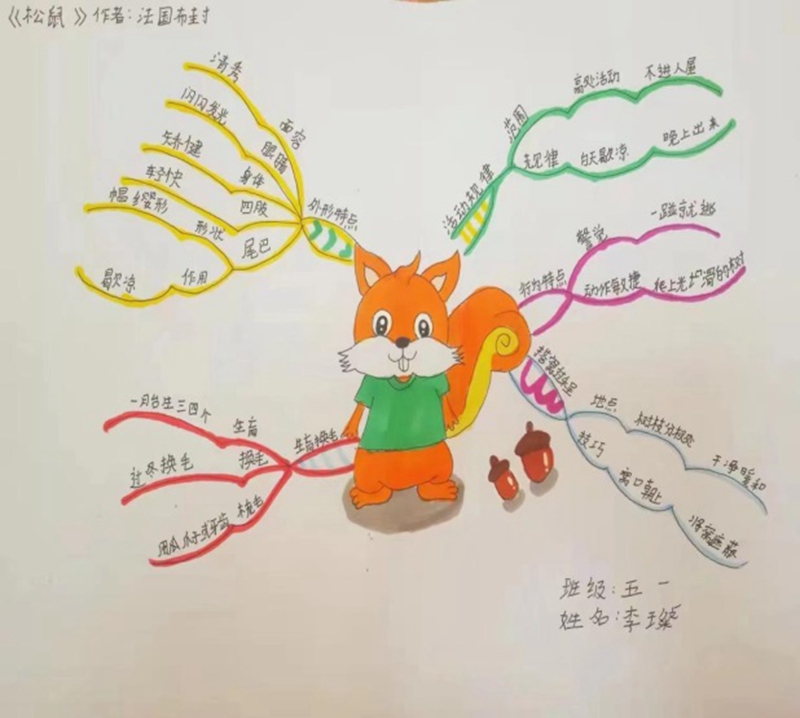 《松鼠》作者:法国布封
外形特点
面容
清秀
眼睛
闪闪发光
身体
矫健
四肢
轻快
尾巴
形状
帽缨形
作用
歇凉
活动规律
范围
高处活动
不进人屋
规律
白天歇凉
晚上出来
行为特点
警觉
一蹦就逃
动作敏捷
爬上光滑的树
搭窝
地点
树枝分杈处
干净暖和
技巧
窝口朝上
生育换毛
生育
一胎生三四个
换毛
过冬换毛
梳毛
用爪子或牙齿
班级:五一
姓名:李璨